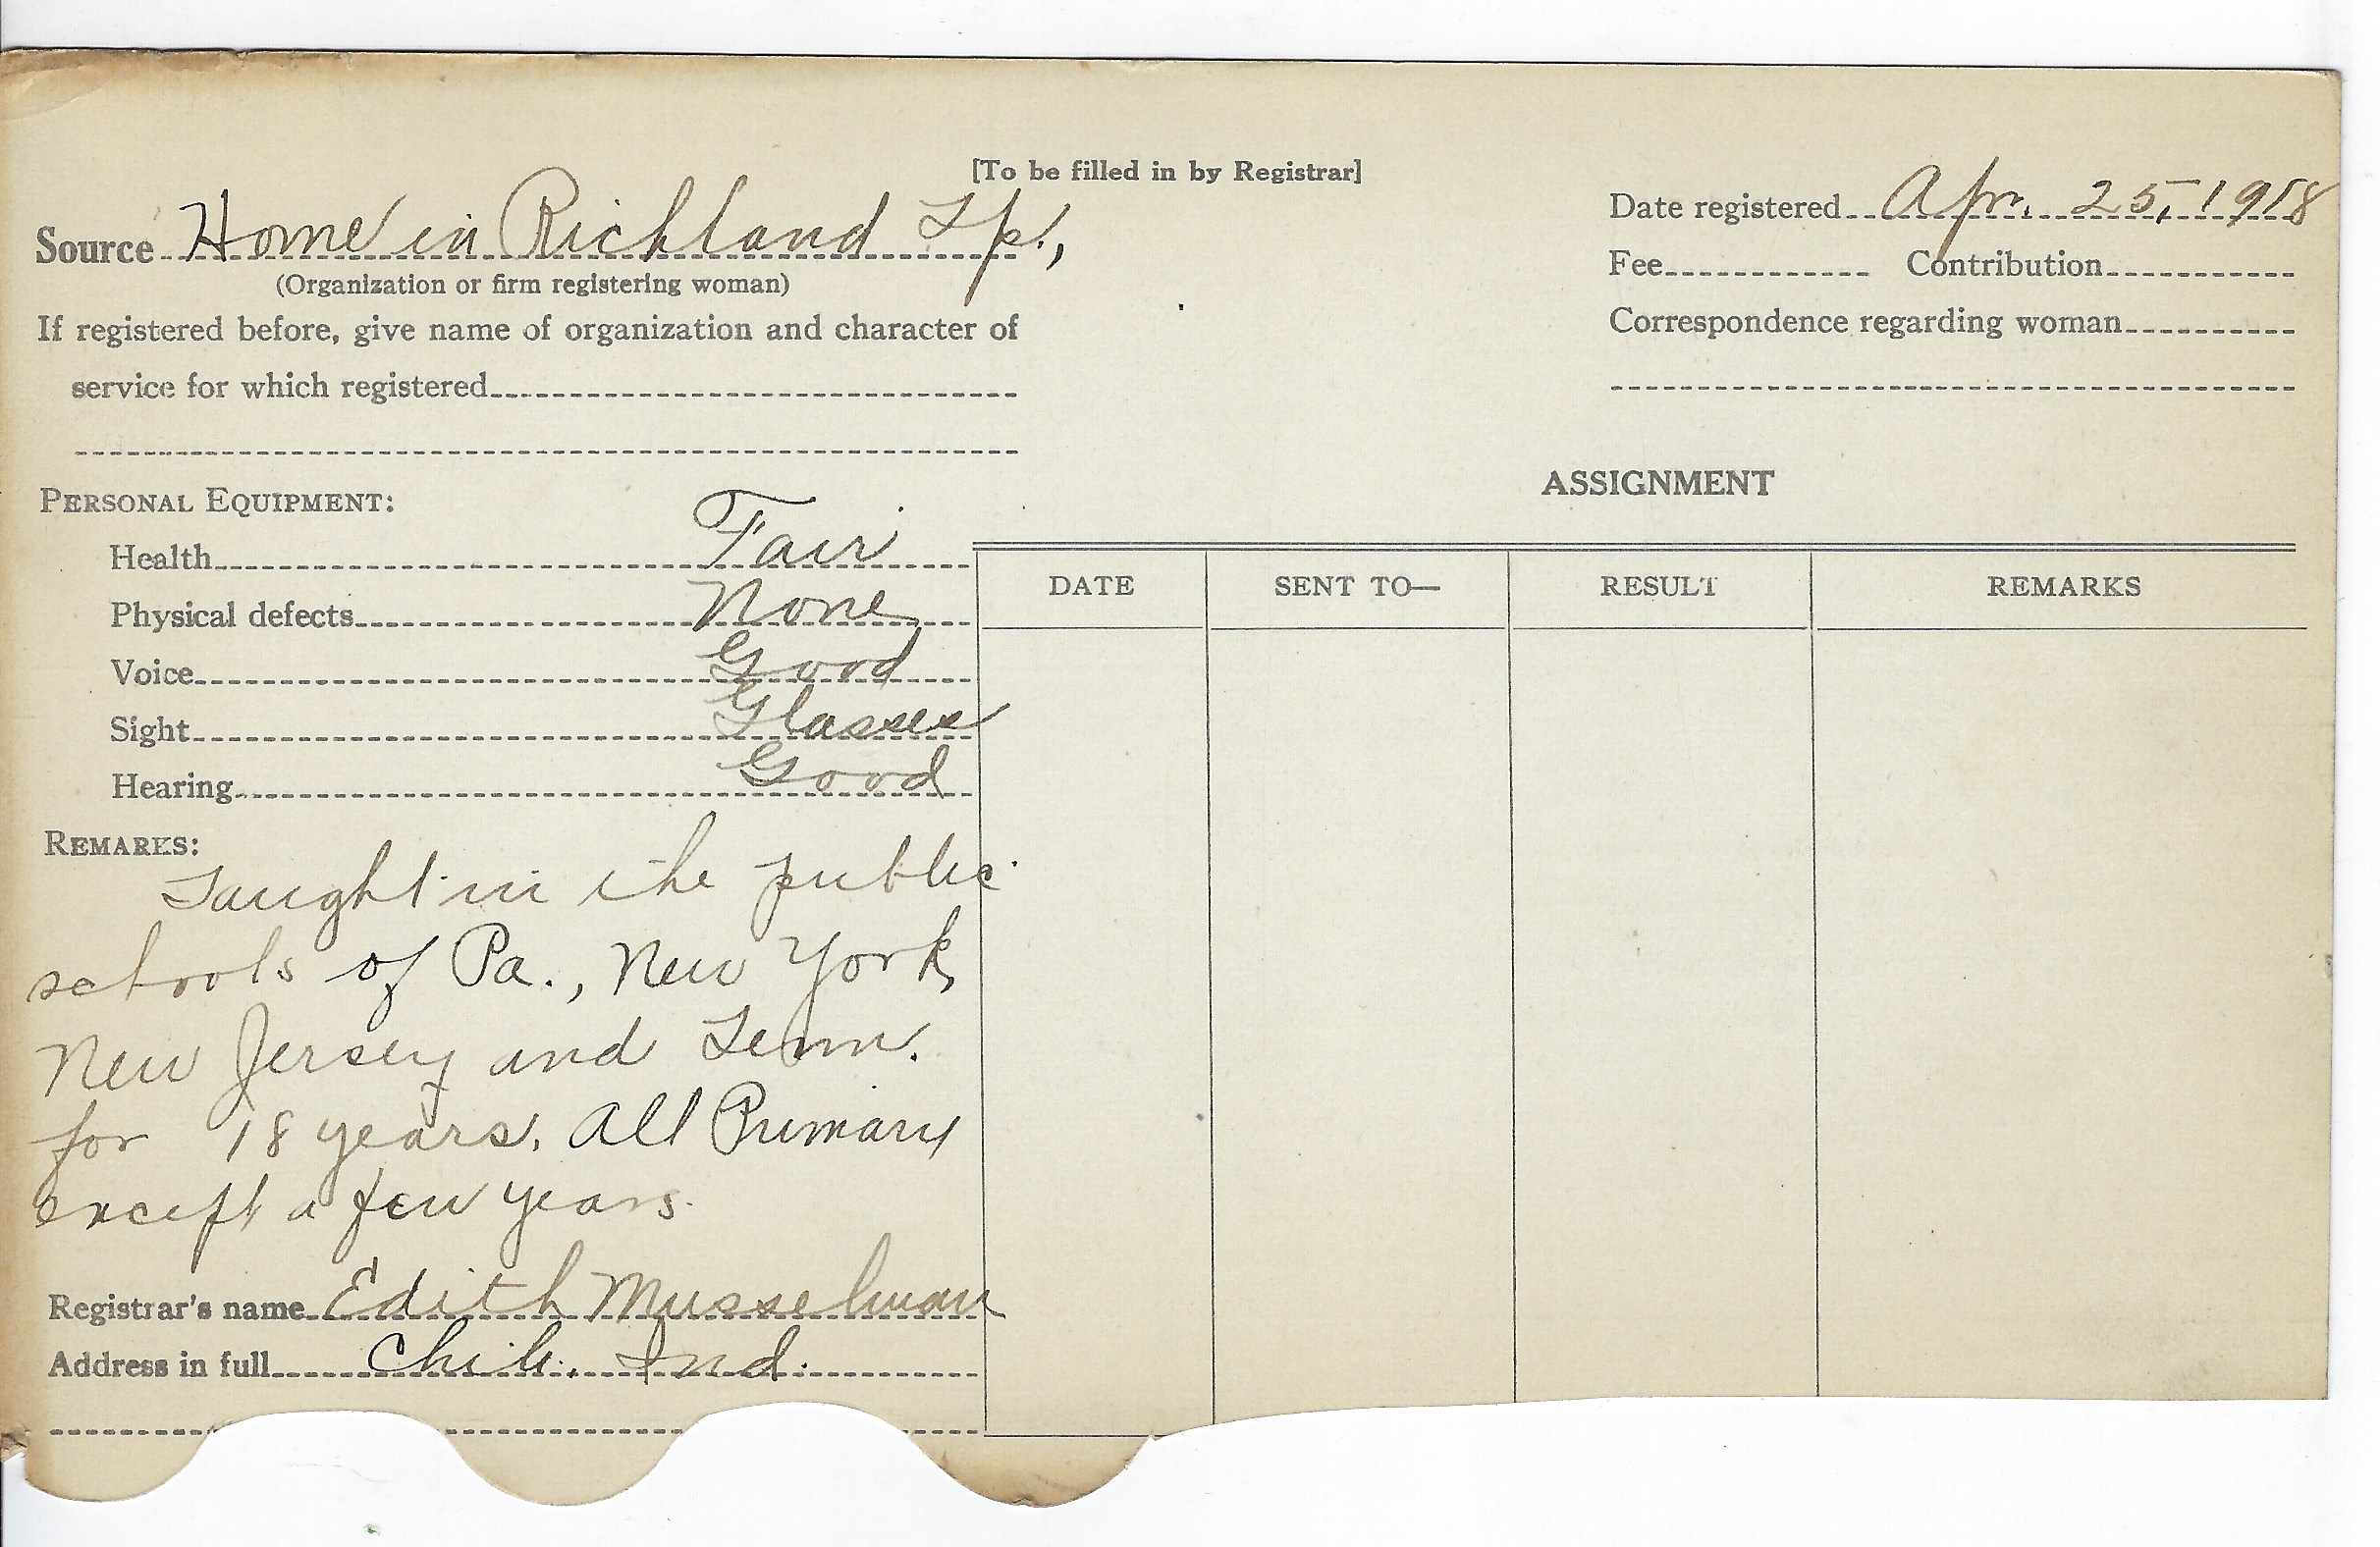 [To be filled in by Registrar]
Source Home in Richland Tp.,
(Organization or firm registering woman)
If registered before, give name of organization and character of
service for which registered
Date registered Apr. 25, 1918
Fee Contribution
Correspondence regarding woman
PERSONAL EQUIPMENT:
Health Fair
Physical defects None
Voice Good
Sight Glasses
Hearing Good
REMARKS:
Taught in the public
schools of Pa., New York,
New Jersey and Tenn.
for 18 years. All Primary
except a few years.
Registrar's name Edith Musselman
Address in full Chili, Ind.
ASSIGNMENT
DATE SENT TO— RESULT REMARKS